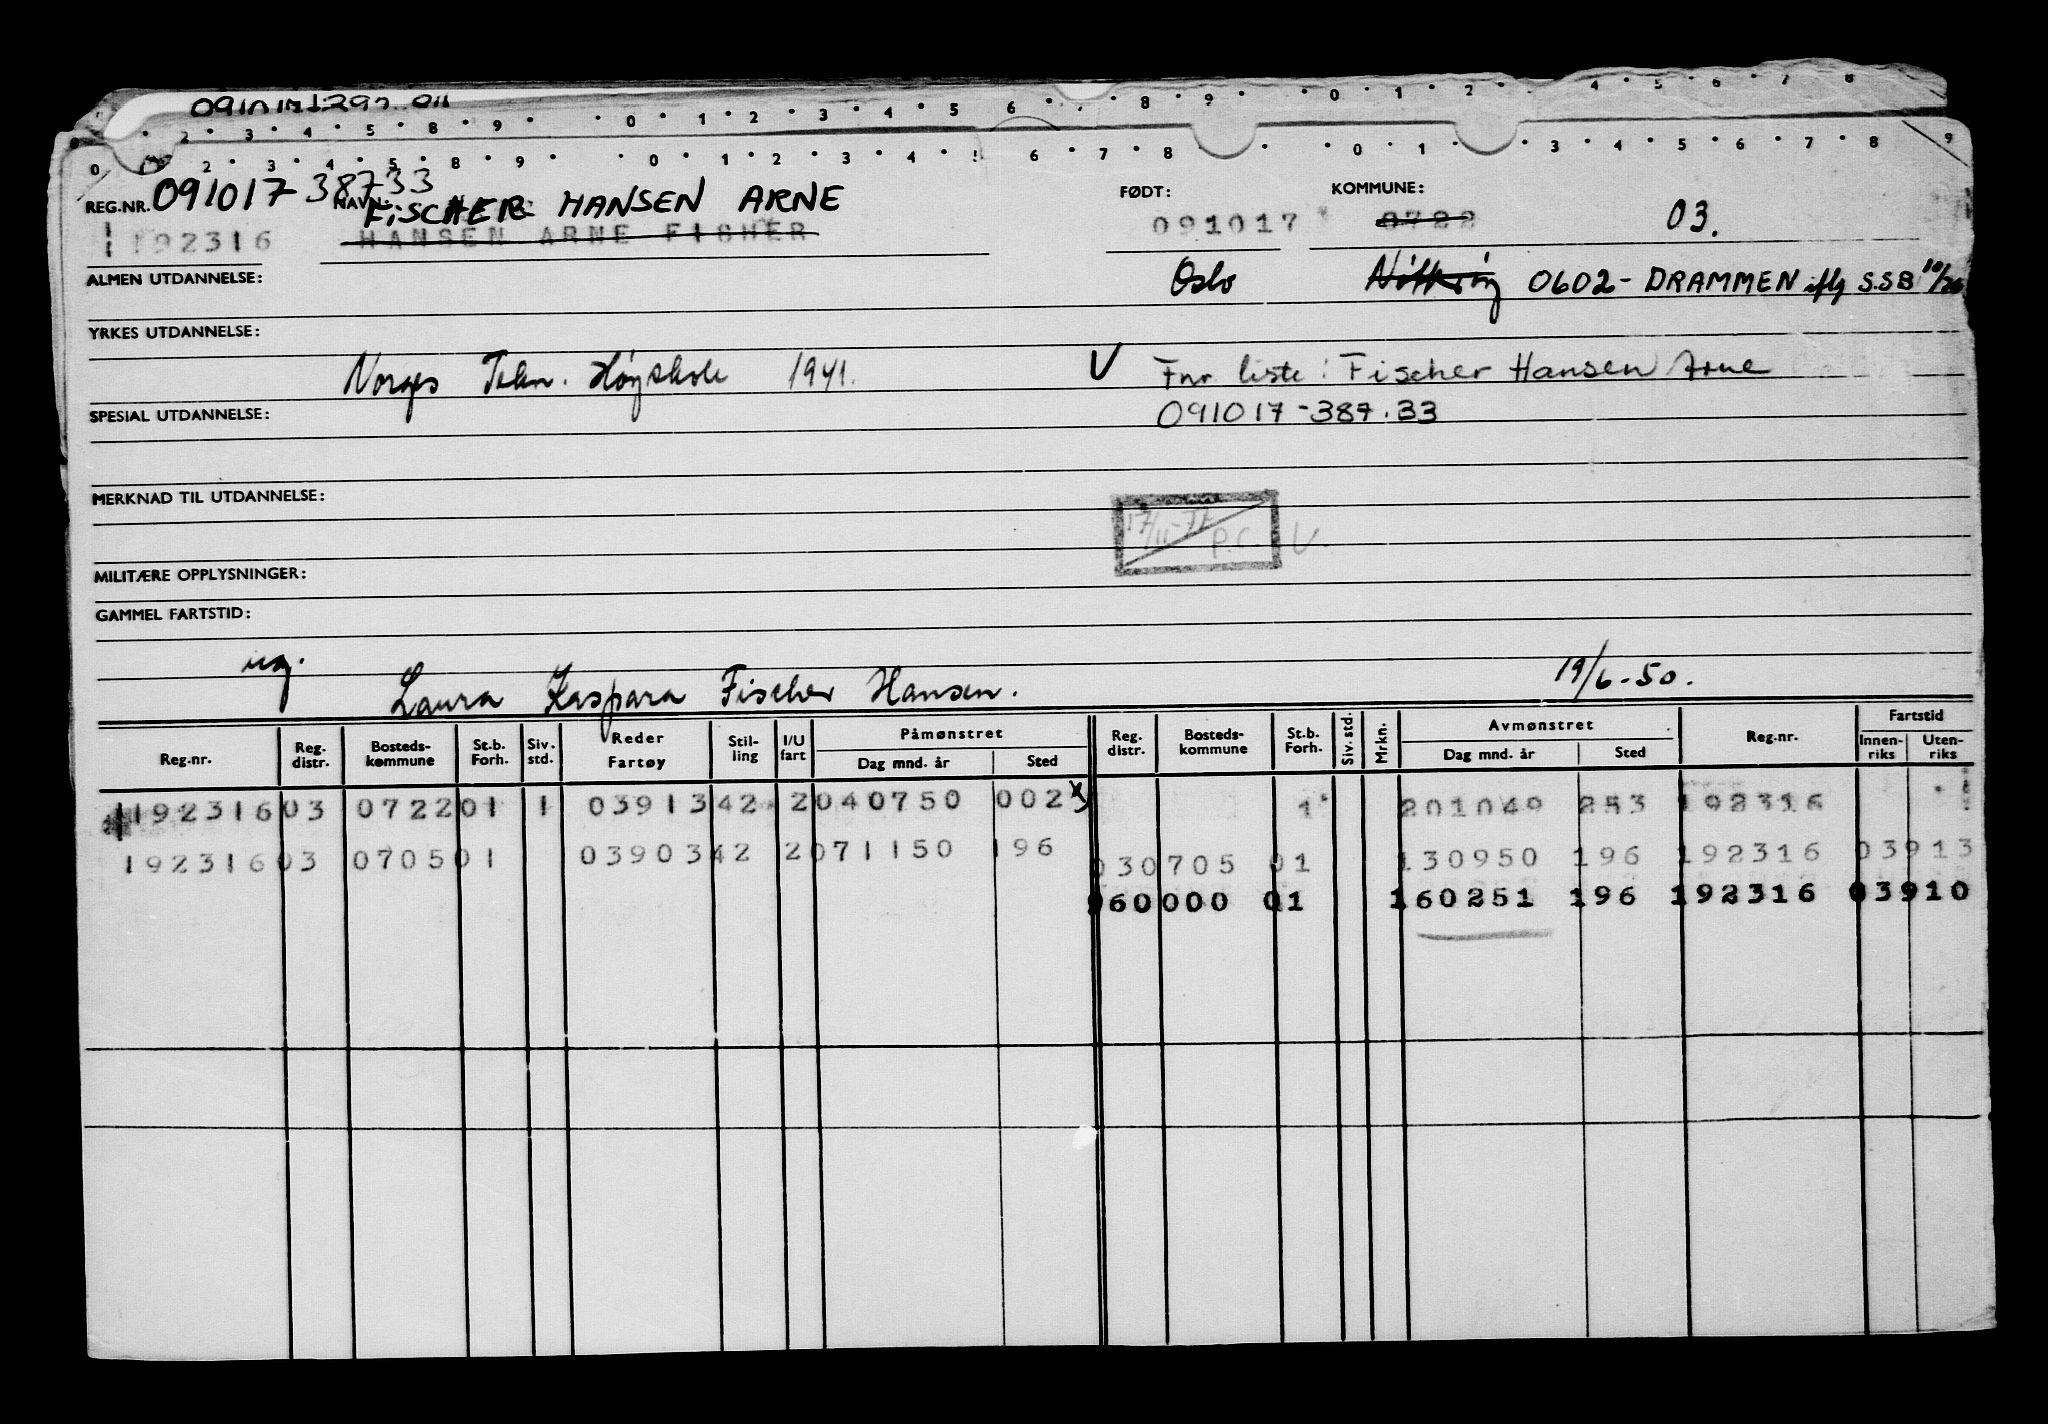 0 2 3 4 5 8 9 0 1 2 3 4 5 6 8 9 0 1 2 4 5 6 7 8
0 2 3 4 5 8 9 0 1 2 3 4 5 6 7 8 0 1 3 4 5 6 7 8 9
REG.NR. 091017-38733 NAVN: FISCHER HANSEN ARNE FØDT: KOMMUNE:
192316 HANSEN ARNE FISHER 091017 0722 03.
ALMEN UTDANNELSE: Oslo Nøtterøy 0602-DRAMMEN iflg S.S.B 10/26
YRKES UTDANNELSE:
Norges Tekn. Høyskole 1941. V Fnr liste: Fischer Hansen Arne
SPESIAL UTDANNELSE: 091017-387.33
MERKNAD TIL UTDANNELSE:
P.C. V.
MILITÆRE OPPLYSNINGER:
GAMMEL FARTSTID:
ug. Laura Kaspara Fischer Hansen. 19/6-50.
Reg.nr. Reg. distr. Bosteds-kommune St.b. Forh. Siv. std. Reder Fartøy Stil-ling I/U fart Påmønstret Dag mnd. år Sted Reg. distr. Bosteds-kommune St.b. Forh. Siv. std. Mrkn. Avmønstret Dag mnd. år Sted Reg.nr. Fartstid Innen-riks Uten-riks
192316 03 0722 01 1 03913 42 2 040750 002 x) 1 201049 253 192316
192316 03 0705 01 03903 42 2 071150 196 03 0705 01 130950 196 192316 03913
960000 01 160251 196 192316 03910